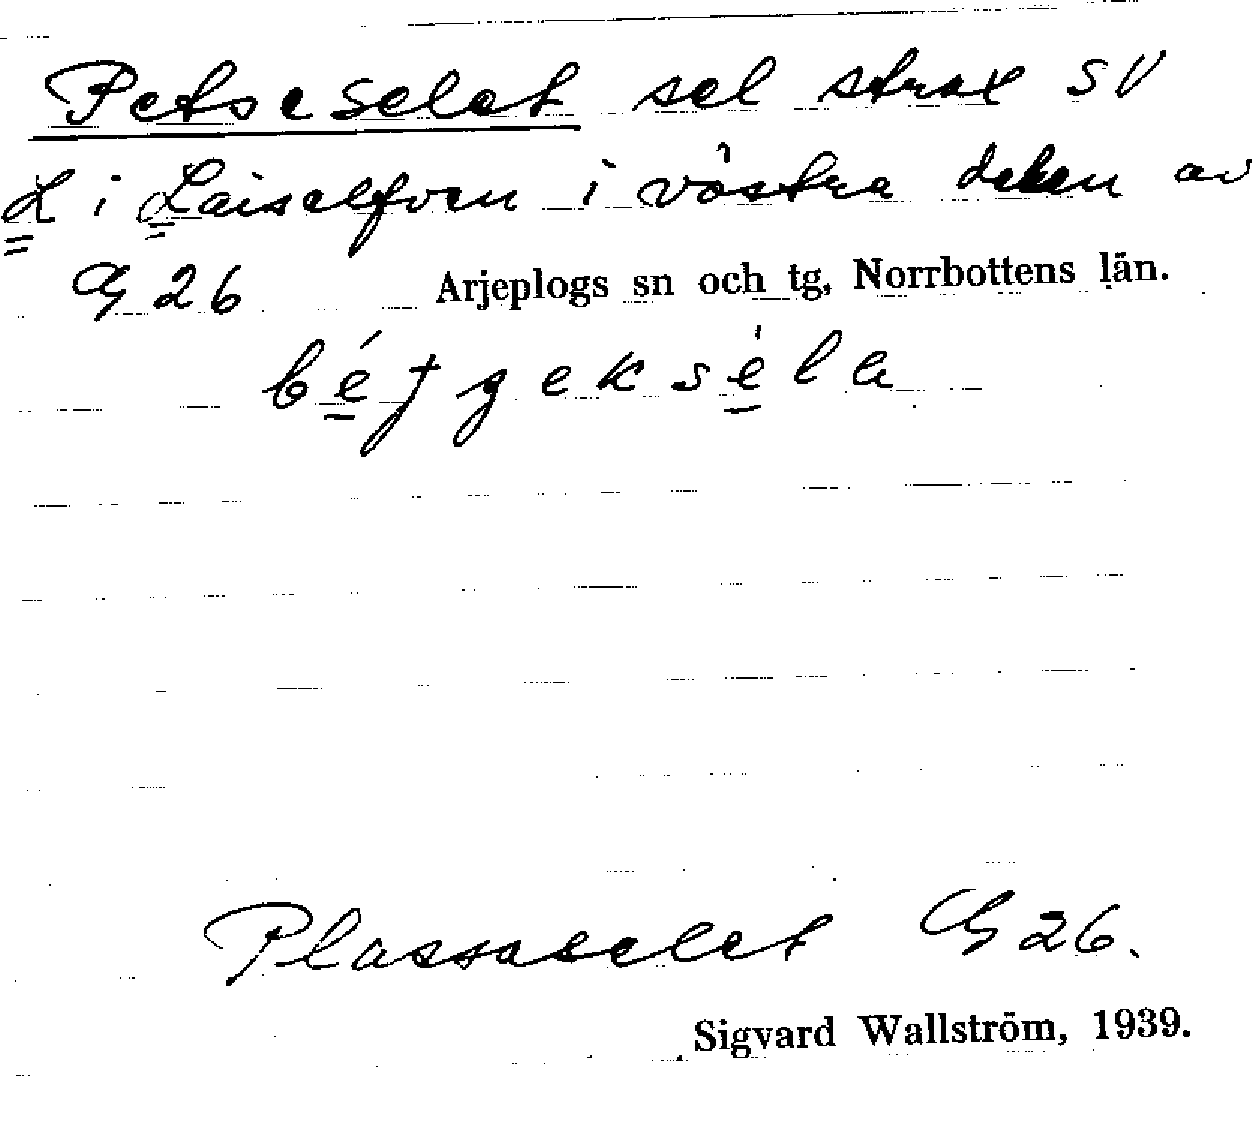 Petseselet sel strax SV
L i Laisälfven i västra delen av
G 26 Arjeplogs sn och tg, Norrbottens län.
Plassaselet G 26.
Sigvard Wallström, 1939.